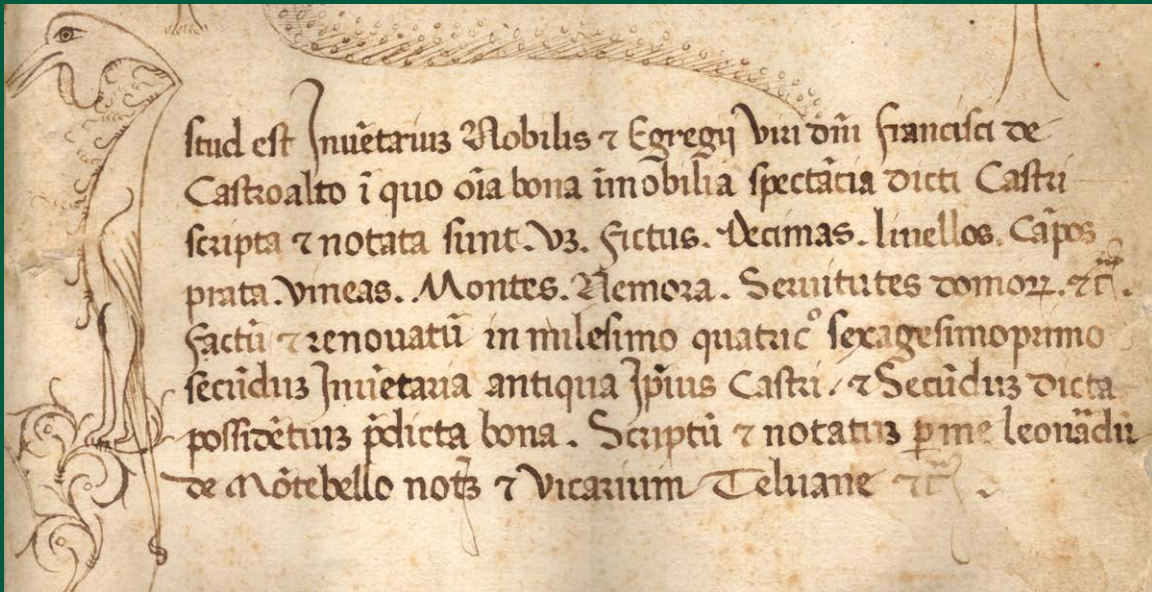 stud est Inuētariuꝫ Nobilis ⁊ Egregij Viri dn̄i francisci de
Castroalto ī quo oīa bona īmobilia spectātia dicti Castri
scripta ⁊ notata sunt. Vꝫ. fictus. Decimas. liuellos. Cāpos
prata. Vineas. Montes. Nemora. Seruitutes domoꝝ. ⁊c̄.
factū ⁊ renouatū in milesimo quatric° sexagesimoprimo
secūduꝫ Inuētaria antiqua Ip̄ius Castri / ⁊ Secūduꝫ dicta
possidētiuꝫ p̄dicta bona. Scriptū ⁊ notatuꝫ ꝑ me leonādū
de Mōtebello notꝫ ⁊ Vicarium Teluane ⁊c̄.